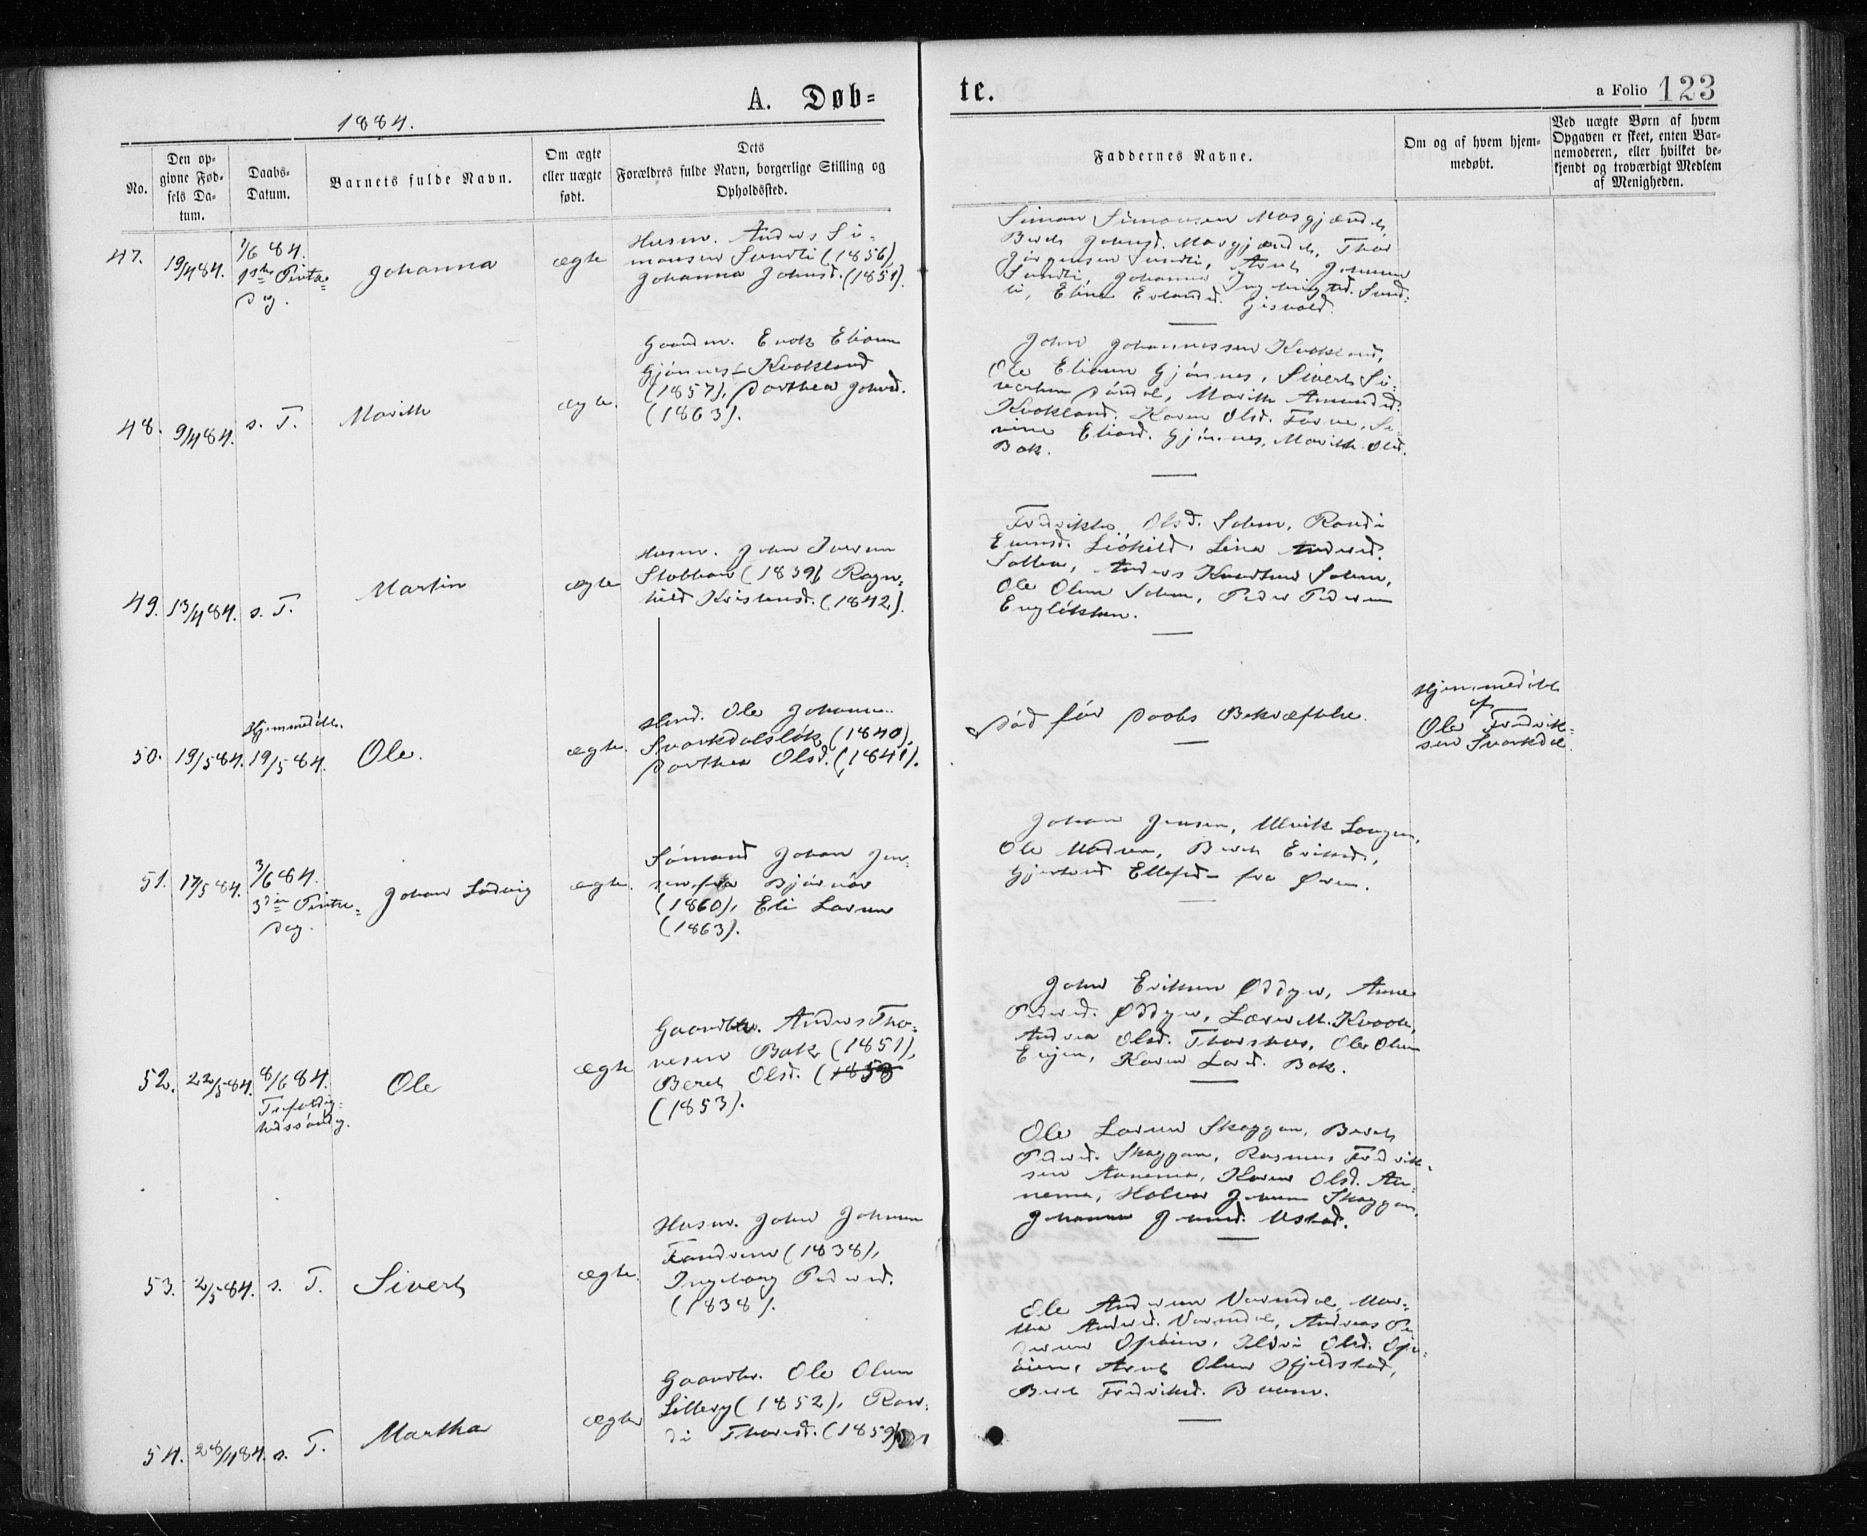 A. Døb=
te.
a Folio 123
1884.
No.
Den op-
givne Fød-
sels Da-
tum.
Daabs-
Datum.
Barnets fulde Navn.
Om ægte
eller uægte
født.
Dets
Forældres fulde Navn, borgerlige Stilling og
Opholdssted.
Faddernes Navne.
Om og af hvem hjem-
medøbt.
Ved uægte Børn af hvem
Opgaven er skeet, enten Bar-
nemoderen, eller hvilket be-
kjendt og troværdigt Medlem
af Menigheden.
47.
19/4 84.
1/6 84.
1ste Pintse=
dag.
Johanna
ægte
Husm. Anders Si-
monsen Sundli (1856),
Johanna Johnsd. (1851).
Simon Simonsen Mosgjændet,
Bereth Johnsd. Mosgjændet, Thor
Jørgensen Sundli, Arnt Johnsen
Sundli, Johanna Ingebrigtsd. Sund-
li, Eline Erlandsd. Gisvold.
48.
9/4 84.
s. T.
Marith
ægte.
Gaardm. Enok Eliasen
Gjønnes-Kvokland
(1857), Dorthea Johnsd.
(1863).
John Johannessen Kvokland,
Ole Eliasen Gjønnes, Sivert Si-
Marith Amundsd.
Kvokland, Karen Olsd. Forve, Se-
rine Eliasd. Gjønnes, Marith Olsd.
Bak.
49.
13/4 84.
s. T.
Martin
ægte
Husm. John Iversen
Stobban (1839), Ragn-
hild Kristensd. (1842).
Fredrikke Olsd. Solem, Randi
Evensd. Lina Andersd.
Anders Knudsen Solem,
Ole Olsen Solem, Peder Pedersen
Engløkken.
50.
19/5 84.
Hjemmedøbt.
19/5 84.
Ole.
ægte.
Ole Johansen
Svorkdalsløk (1840),
Dorthea Olsd. (1841).
Død før Daabs Bekræftelse.
Hjemmedøbt
af
Ole Fredrik-
sen Svorkdal.
51.
17/5 84.
3/6 84.
3die Pintse-
dag.
Johan Ludvig
ægte.
Sømand Johan Jen-
sen fra Bjørnør
(1860), Eli Larsen
(1863).
Johan Jensen, Ulrik Langen,
Ole Madsen, Bereth Eriksd.,
Gjertrud Ellefsd. fra Øren.
52.
22/5 84.
8/6 84.
Trefoldig-
hedssøndag.
Ole
ægte
Gaardbr. Anders Tho-
resen Bak (1851),
Bereth Olsd. (1858
(1853).
John Eriksen Oddyn, Anne
Pedersd. Oddyn, Lærer M. Kvaale,
Andrea Olsd. Thorshus, Ole Olsen
Evjen, Karen Larsd. Bak.
53.
2/5 84.
s. T.
Sivert
ægte.
Husm. John Johnsen
(1838),
Ingeborg Pedersd.
(1838).
Ole Larsen Skoggan, Bereth
Pedersd. Skoggan, Rasmus Fredrik-
sen Annemo, Karen Olsd. An-
nemo, Halvor Johnsen Skoggan,
Johanna Johnsd. Ustad.
54.
28/4 84.
s. T.
Martha
ægte
Gaardbr. Ole Olsen
Lillery (1852), Ran-
di Thoresd. (1859)
Ole Andersen Vormdal, Mar-
tha Andersd. Vormdal, Andreas Pe-
dersen Opøien, Ildri Olsd. Op-
øien, Arnt Olsen Hjeldstad,
Bereth Fredriksd.